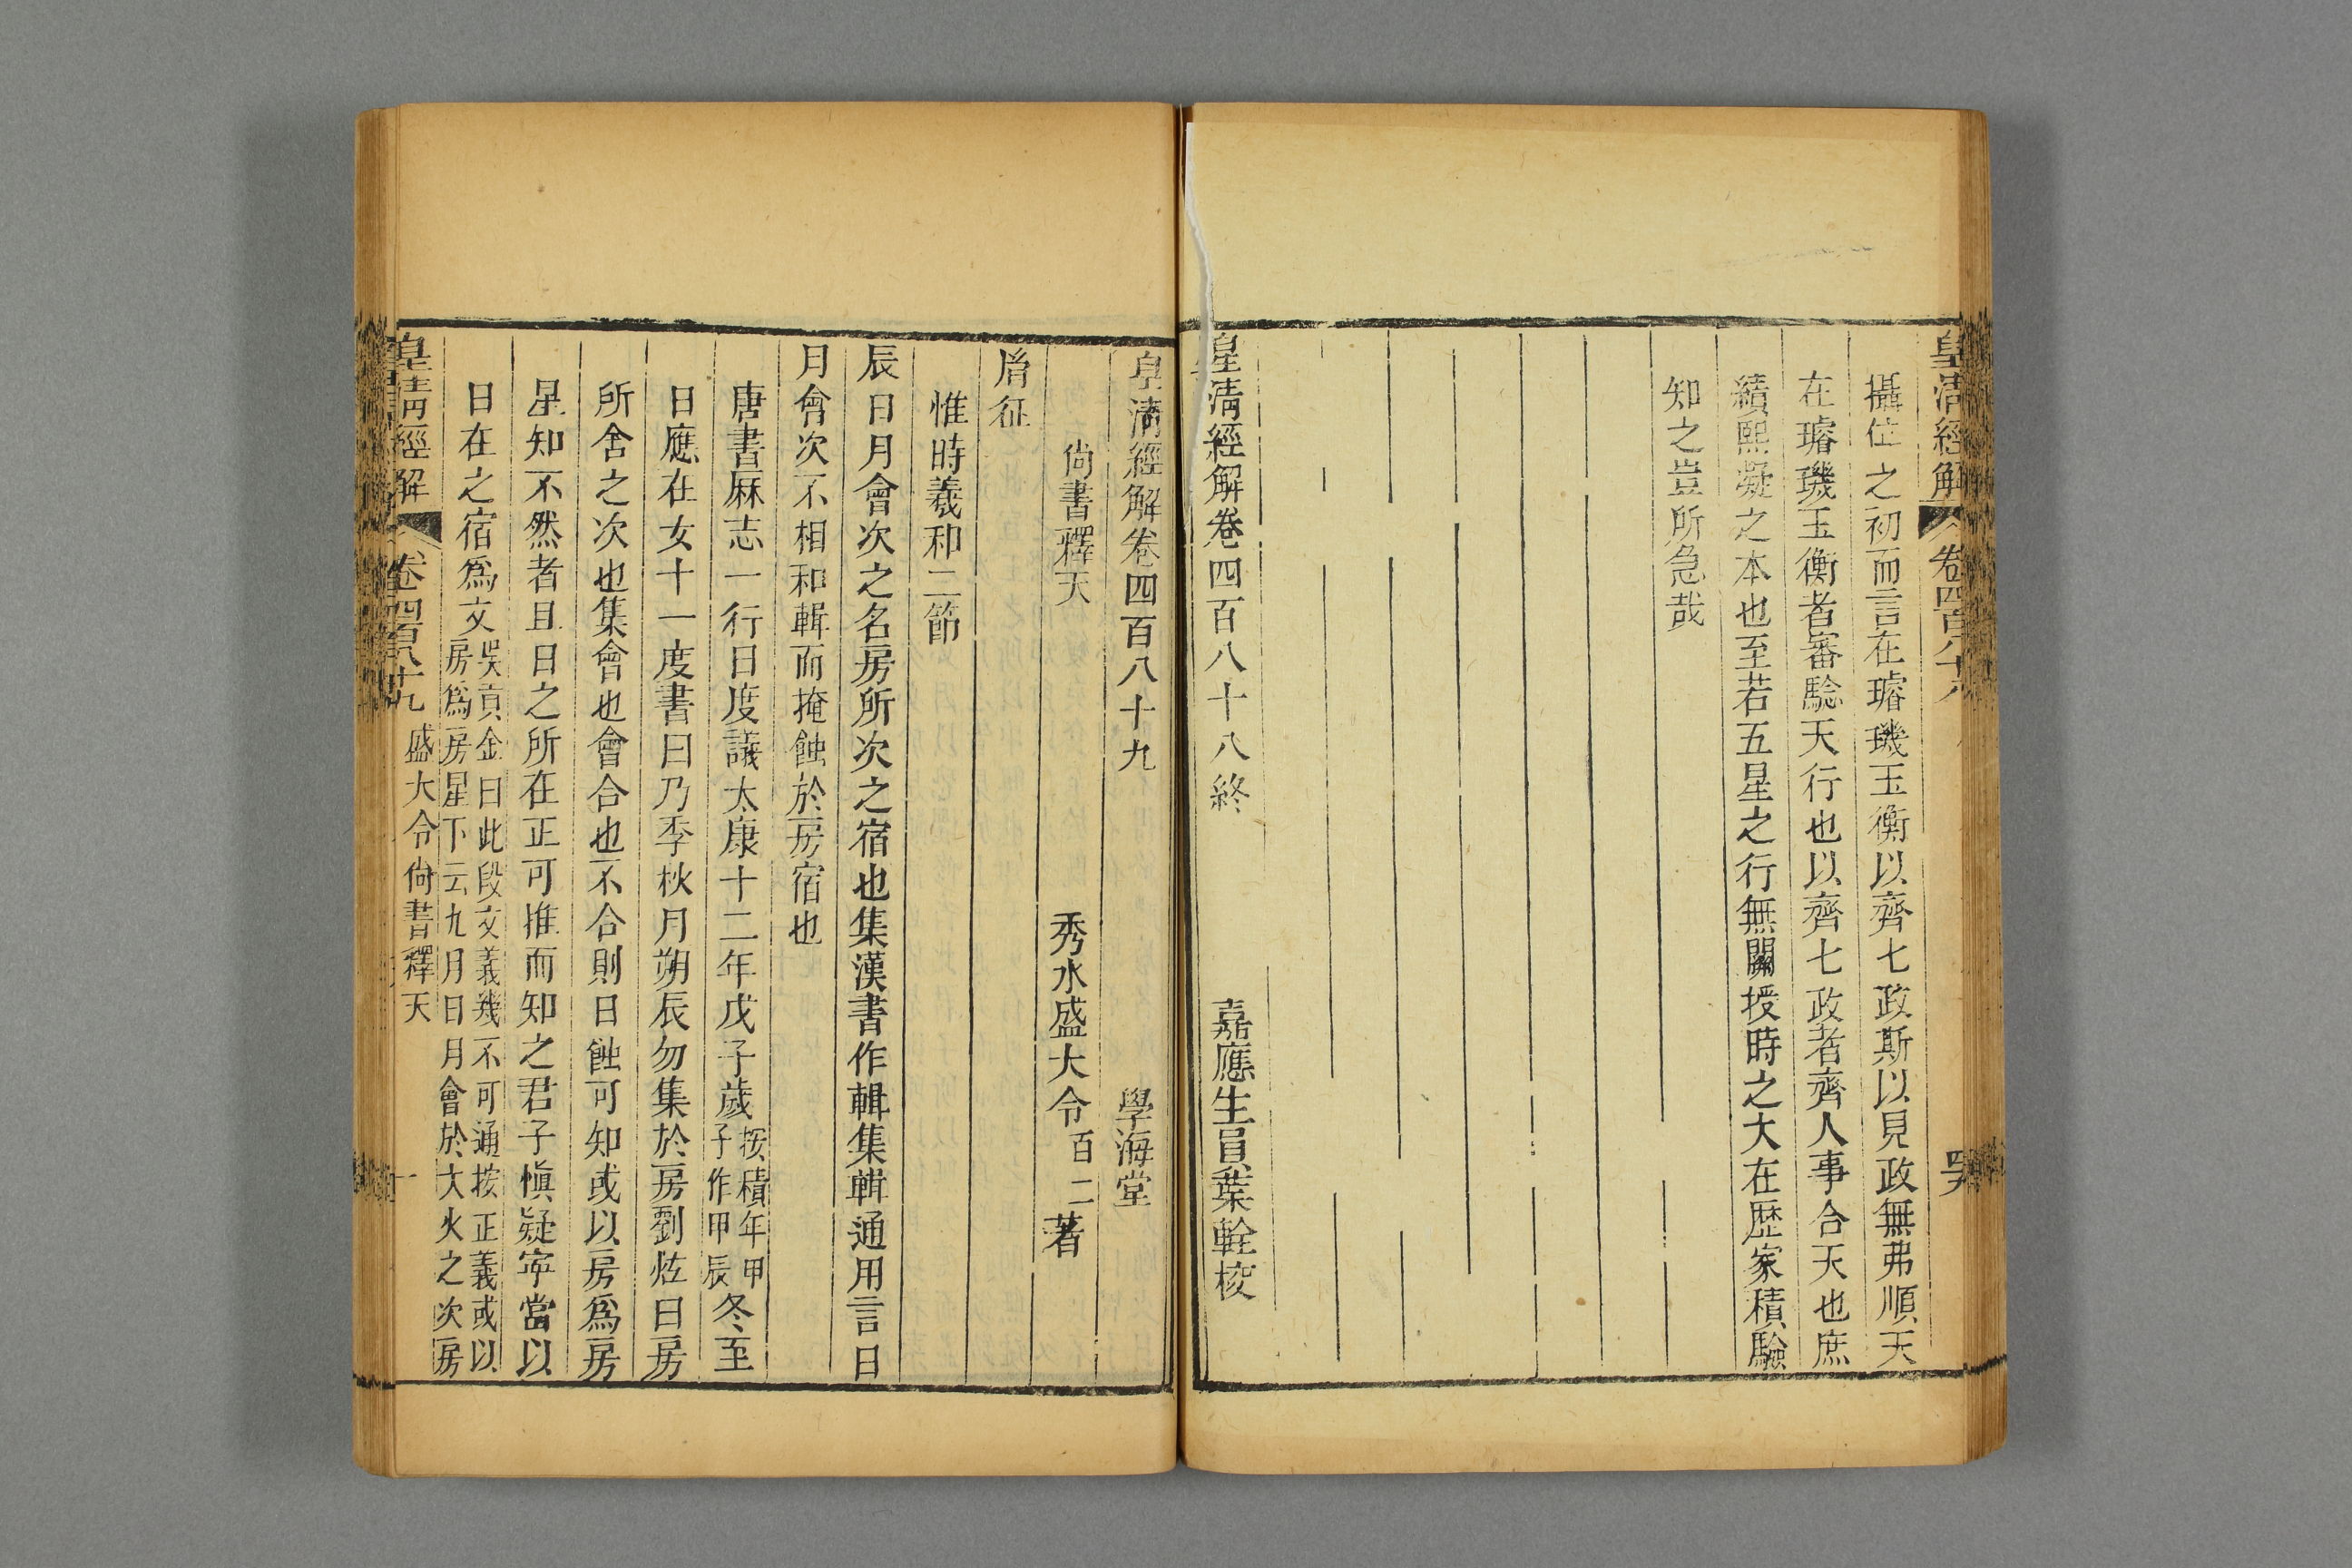 皇淸經解 卷四百八十八 四六
攝位之初而言在璿璣玉衡以齊七政斯以見政無弗順天
在璿璣玉衡者審騐天行也以齊七政者齊人事合天也庶
績熙凝之本也至若五星之行無關授時之大在歷家積驗
知之豈所急哉
皇淸經解卷四百八十八終 嘉應生員葉輇校
皇淸經解卷四百八十九 學海堂
尙書釋天 秀水盛大令百二著
胤征
惟時羲和二節
辰日月會次之名房所次之宿也集漢書作輯集輯通用言日
月會次不相和輯而掩蝕於房宿也
唐書厤志一行日度議太康十二年戊子歲按積年甲子作甲辰冬至
日應在女十一度書曰乃季秋月朔辰勿集於房劉炫曰房
所舍之次也集會也會合也不合則日蝕可知或以房爲房
星知不然者且日之所在正可推而知之君子愼疑寧當以
日在之宿爲文吳貢金曰此段文義幾不可通按正義或以
房爲房星下云九月日月會於大火之次房
皇淸經解 卷四百八十九 盛大令尙書釋天 一